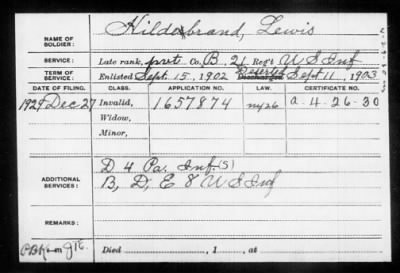 NAME OF SOLDIER: Hildebrand, Lewis
SERVICE: Late rank, prvt. Co. B, 21 Reg't U S Inf
TERM OF SERVICE: Enlisted Sept. 15, 1902 Discharged Sept 11, 1903
DATE OF FILING. CLASS. APPLICATION NO. LAW. CERTIFICATE NO.
1927 Dec 27 Invalid, 1657874 a-4-26-30
Widow,
Minor,
ADDITIONAL SERVICES: D 4 Pa. Inf. (S)
B, D, E 8 U S Inf
REMARKS:
Died , 1 , at